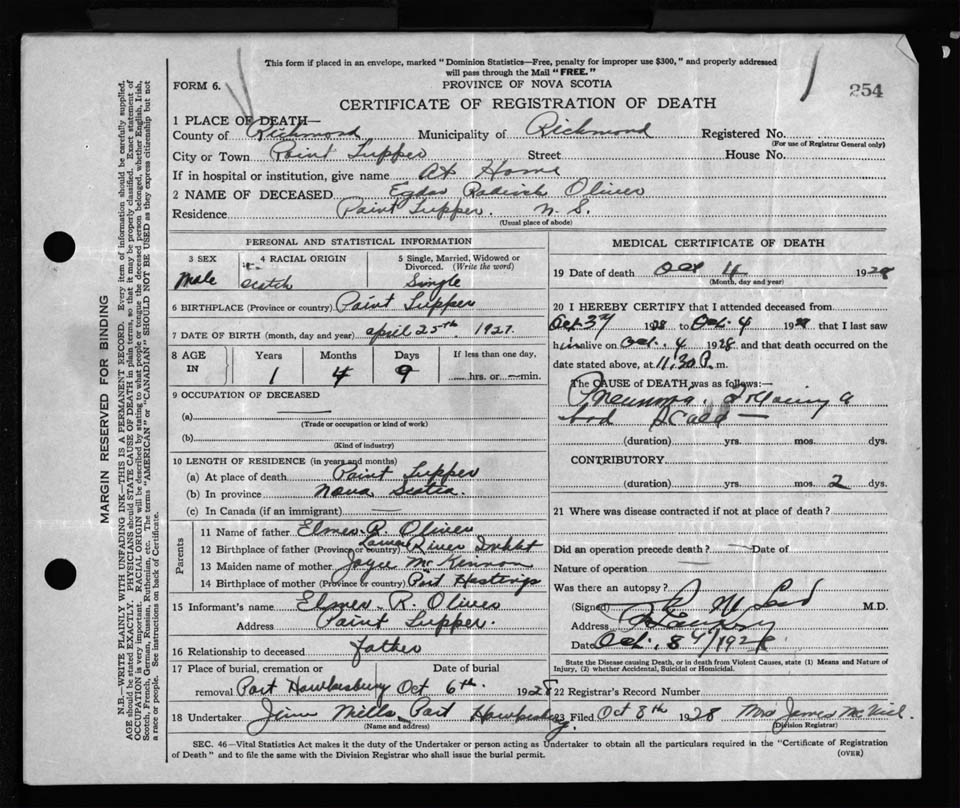 This form if placed in an envelope, marked "Dominion Statistics—Free, penalty for improper use $300," and properly addressed
will pass through the Mail "FREE."
FORM 6.
PROVINCE OF NOVA SCOTIA
254
CERTIFICATE OF REGISTRATION OF DEATH
1 PLACE OF DEATH—
County of Richmond Municipality of Richmond Registered No.
(For use of Registrar General only)
City or Town Point Tupper Street House No.
If in hospital or institution, give name At Home
2 NAME OF DECEASED Egdar Oliver
Residence Point Tupper. N. S.
(Usual place of abode)
PERSONAL AND STATISTICAL INFORMATION
3 SEX 4 RACIAL ORIGIN 5 Single, Married, Widowed or
Divorced. (Write the word)
Male Scotch Single
6 BIRTHPLACE (Province or country) Point Tupper
7 DATE OF BIRTH (month, day and year) april 25th 1927.
8 AGE IN Years Months Days If less than one day,
1 4 9 hrs. or min.
9 OCCUPATION OF DECEASED
(a)
(Trade or occupation or kind of work)
(b)
(Kind of industry)
10 LENGTH OF RESIDENCE (in years and months)
(a) At place of death Point Tupper
(b) In province Nova Scotia.
(c) In Canada (if an immigrant)
Parents
11 Name of father Elmer R. Oliver
12 Birthplace of father (Province or country) Lower River Inhbt
13 Maiden name of mother Joyce McKennon
14 Birthplace of mother (Province or country) Port Hastings
15 Informant's name Elmer R. Oliver
Address Point Tupper.
16 Relationship to deceased father
17 Place of burial, cremation or Date of burial
removal Port Hawkesbury Oct 6th. 1928
18 Undertaker Jim Mills Port Hawkesbury
(Name and address)
MEDICAL CERTIFICATE OF DEATH
19 Date of death Oct 4 1928
(Month, day and year)
20 I HEREBY CERTIFY that I attended deceased from
Oct 3rd 1928 to Oct. 4 1928 that I last saw
him alive on Oct. 4 1928 and that death occurred on
date stated above, at 11.30 P. m.
The CAUSE of DEATH was as follows:—
Pneumonia following a
bad scald —
(duration) yrs. mos. dys.
CONTRIBUTORY
(duration) yrs. mos. 2 dys.
21 Where was disease contracted if not at place of death?
Did an operation precede death? Date of
Nature of operation
Was there an autopsy?
(Signed) M.D.
Address
Date Oct. 8th/1928
State the Disease causing Death, or in death from Violent Causes, state (1) Means and Nature of
Injury, (2) whether Accidental, Suicidal or Homicidal.
22 Registrar's Record Number
23 Filed Oct 8th 1928 Mrs James McNeil
(Division Registrar)
SEC. 46—Vital Statistics Act makes it the duty of the Undertaker or person acting as Undertaker to obtain all the particulars required in the "Certificate of Registration
of Death" and to file the same with the Division Registrar who shall issue the burial permit.
(OVER)
MARGIN RESERVED FOR BINDING
N.B.—WRITE PLAINLY WITH UNFADING INK—THIS IS A PERMANENT RECORD. Every item of information should be carefully supplied.
AGE should be stated EXACTLY. PHYSICIANS should STATE CAUSE OF DEATH in plain terms, so that it may be properly classified. Exact statement of
OCCUPATION is very important. RACIAL ORIGIN will be described by stating to what people or tongue the deceased person belonged, whether English, Irish,
Scotch, French, German, Russian, Ruthenian, etc. The terms "AMERICAN" or "CANADIAN" SHOULD NOT BE USED as they express citizenship but not
a race or people. See instructions on back of Certificate.